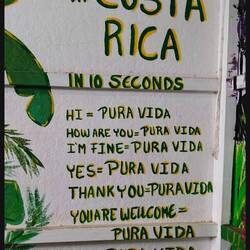 COSTA
RICA
IN 10 SECONDS
HI = PURA VIDA
HOW ARE YOU = PURA VIDA
I'M FINE = PURA VIDA
YES = PURA VIDA
THANK YOU = PURA VIDA
YOU ARE WELLCOME =
PURA VIDA
PURA VIDA